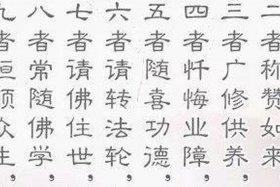 二者称赞如来
三者广修供养，
四者忏悔业障，
五者随喜功德，
六者请转法轮，
七者请佛住世，
八者常随佛学，
九者恒顺众生，